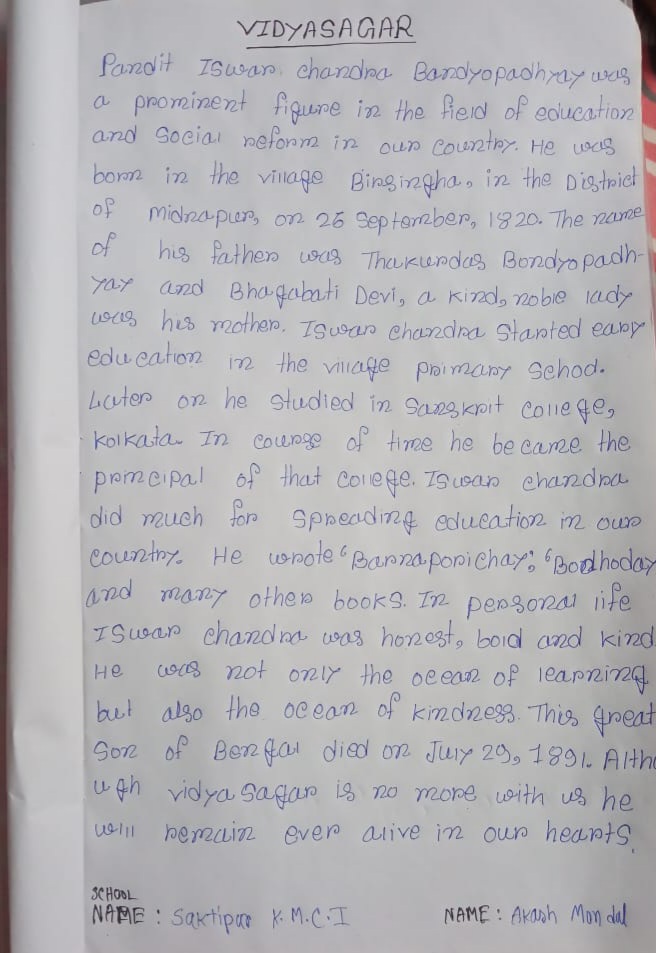 VIDYASAGAR
Pandit Iswar chandra Bandyopadhyay was
a prominent figure in the field of education
and Social reform in our country. He was
born in the village Birsingha, in the District
of Midnapur, on 26 September, 1820. The name
of his father was Thakurdas Bondyopadh-
yay and Bhagabati Devi, a kind, noble lady
was his mother. Iswar chandra Started eary
education in the village primary School.
Later on he studied in Sanskrit college,
Kolkata. In course of time he became the
principal of that college. Iswar chandra
did much for spreading education in our
country. He wrote "Barnaporichay", "Bodhoday
and many other books. In personal life
Iswar chandra was honest, bold and kind
He was not only the ocean of learning
but also the ocean of kindness. This great
Son of Bengal died on July 29, 1891. Altho
ugh vidyasagar is no more with us he
will remain ever alive in our hearts.
SCHOOL
NAME : Saktipur K.M.C.I NAME : Akash Mondal